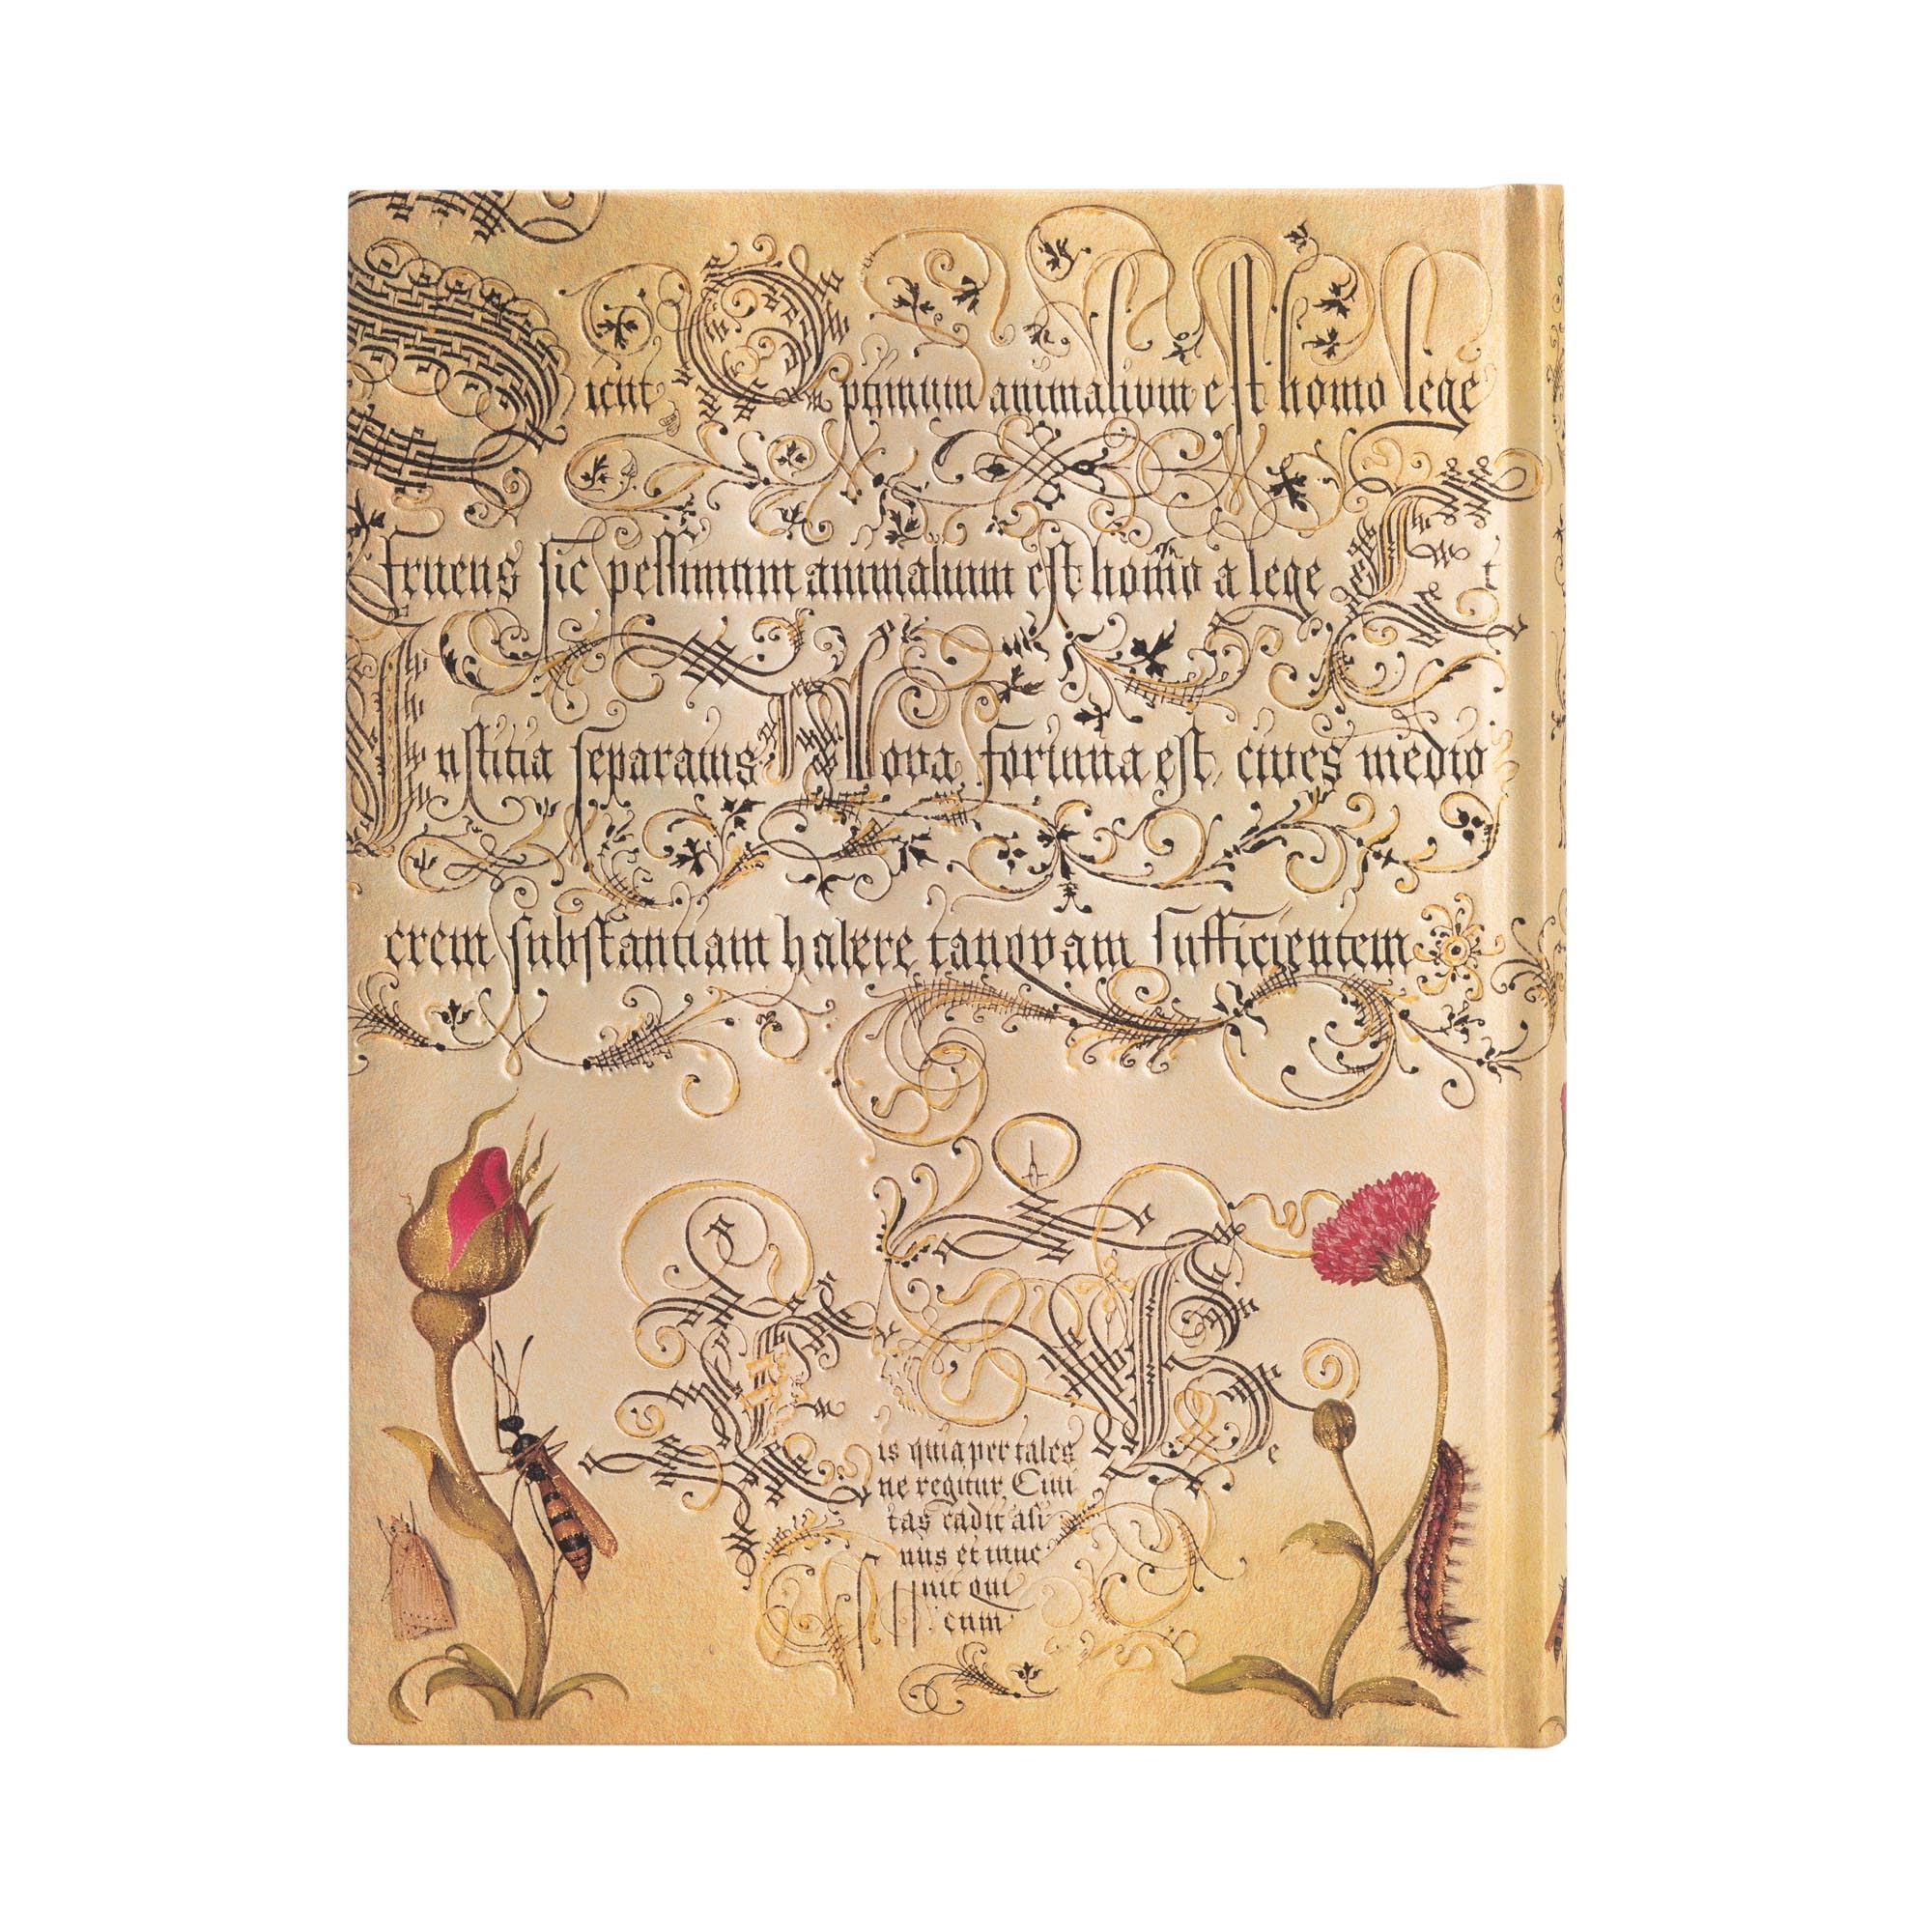 Sicut Optimum animalium est homo lege
fruens sic pessimum animalium est homo a lege Et
Iustitia separatus Nova fortuna est, cives medio
crem substantiam habere tanquam sufficientem
is quia per tales
ne regitur Civi
tas cadit asi
nus et inve
nit qui
cum